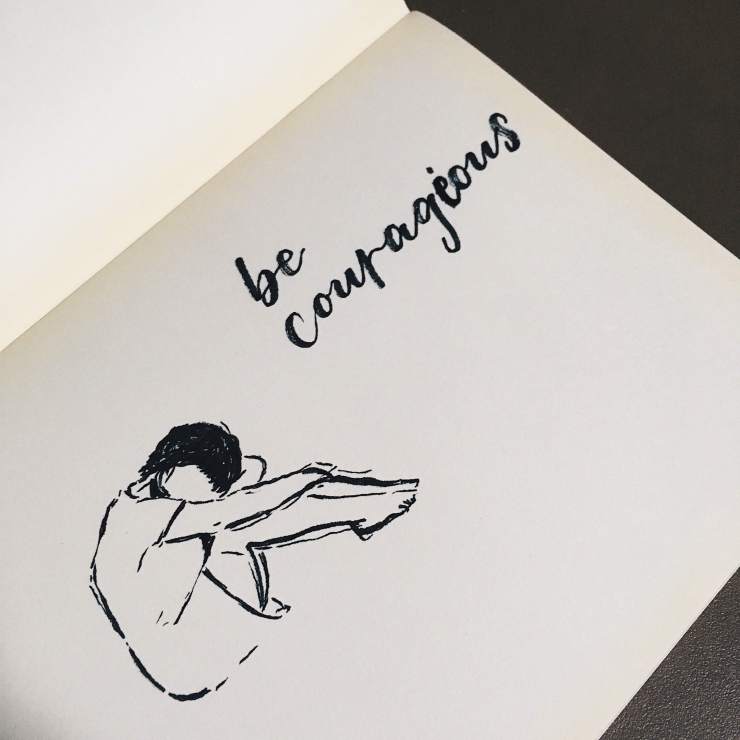 be
courageous